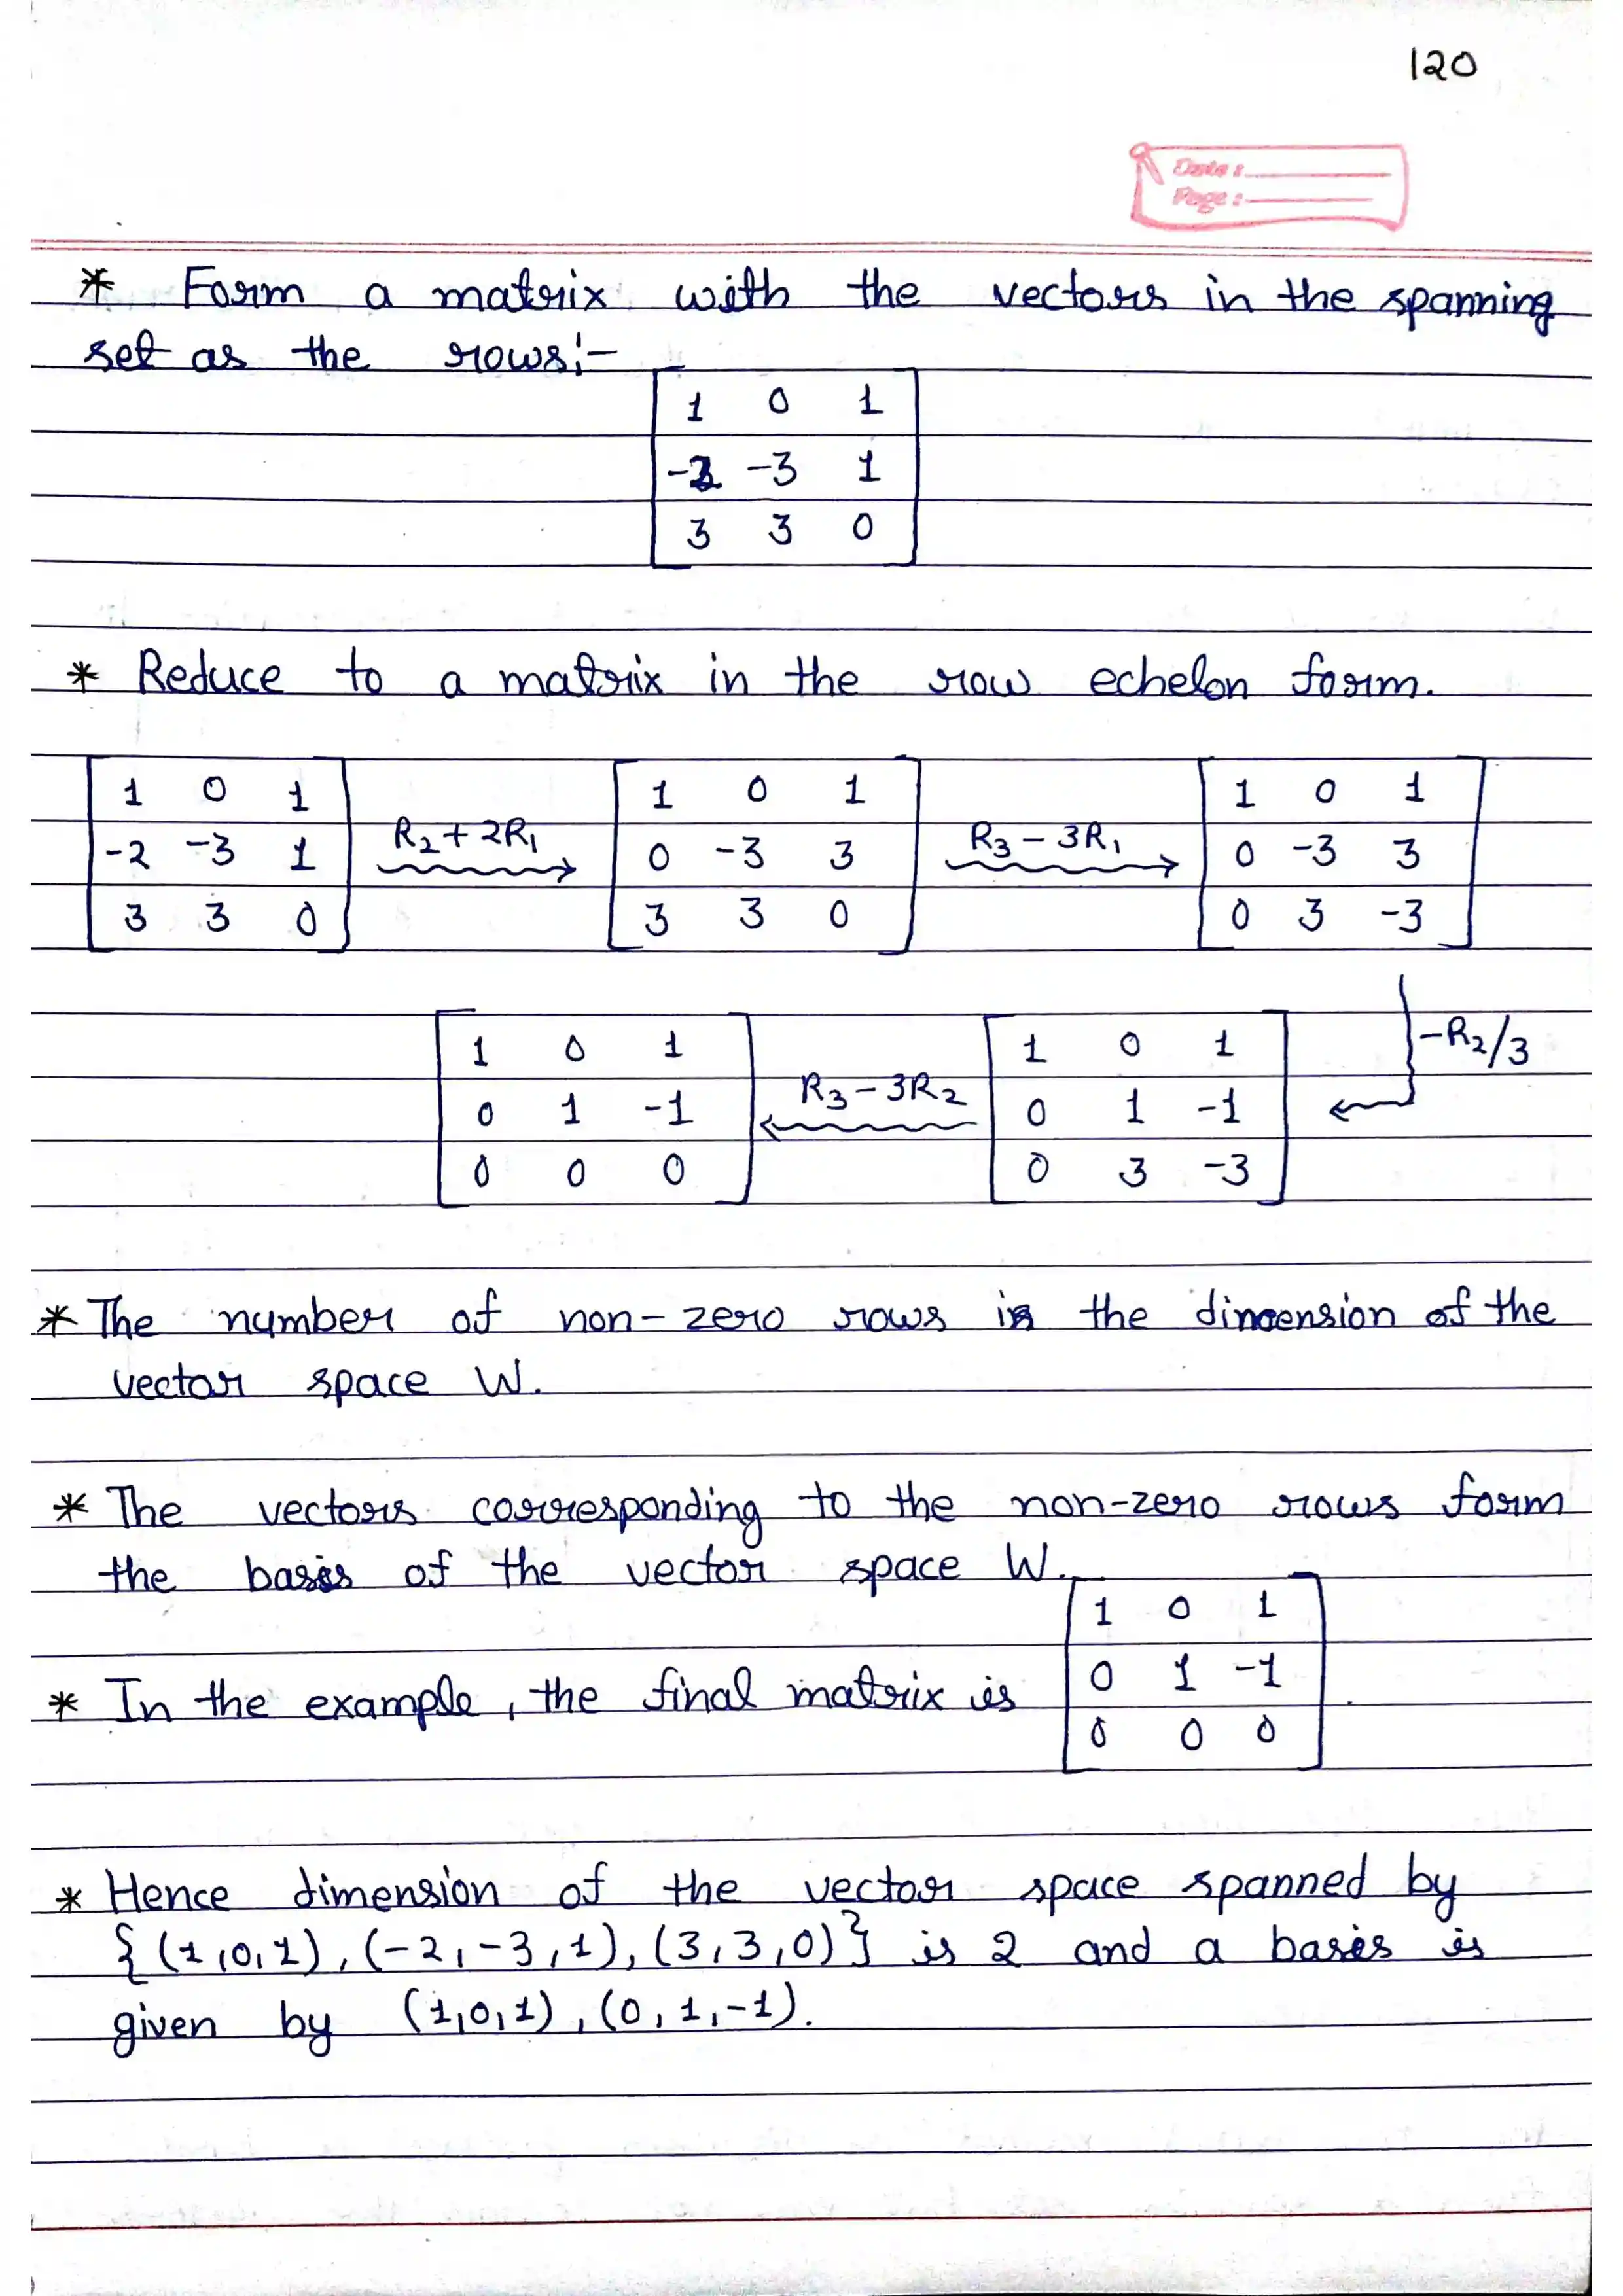 120
Date :
Page :
* Form a matrix with the vectors in the spanning
set as the rows:-
1 0 1
-2 -3 1
3 3 0
* Reduce to a matrix in the row echelon form.
1 0 1 1 0 1 1 0 1
-2 -3 1 R₂ + 2R₁ 0 -3 3 R₃ - 3R₁ 0 -3 3
3 3 0 3 3 0 0 3 -3
1 0 1 1 0 1 -R₂/3
0 1 -1 R₃ - 3R₂ 0 1 -1
0 0 0 0 3 -3
* The number of non-zero rows is the dimension of the
vector space W.
* The vectors corresponding to the non-zero rows form
the basis of the vector space W.
1 0 1
* In the example, the final matrix is 0 1 -1 .
0 0 0
* Hence dimension of the vector space spanned by
{(1,0,1), (-2,-3,1), (3,3,0)} is 2 and a basis is
given by (1,0,1), (0,1,-1).